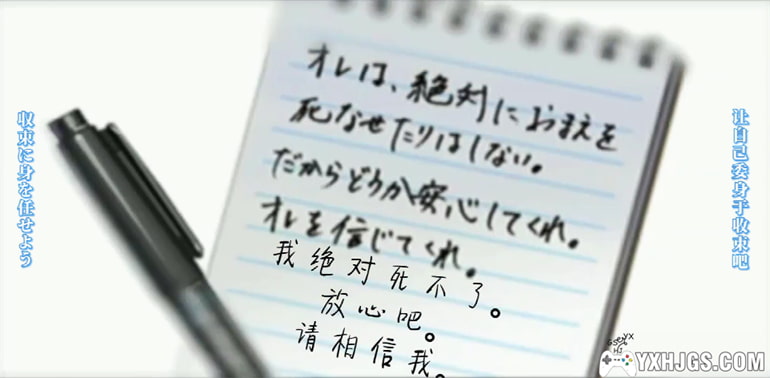 オレは、絶対におまえを
死なせたりはしない。
だからどうか安心してくれ。
オレを信じてくれ。
我绝对死不了。
放心吧。
请相信我。
収束に身を任せよう
让自己委身于收束吧
YXHJGS.COM